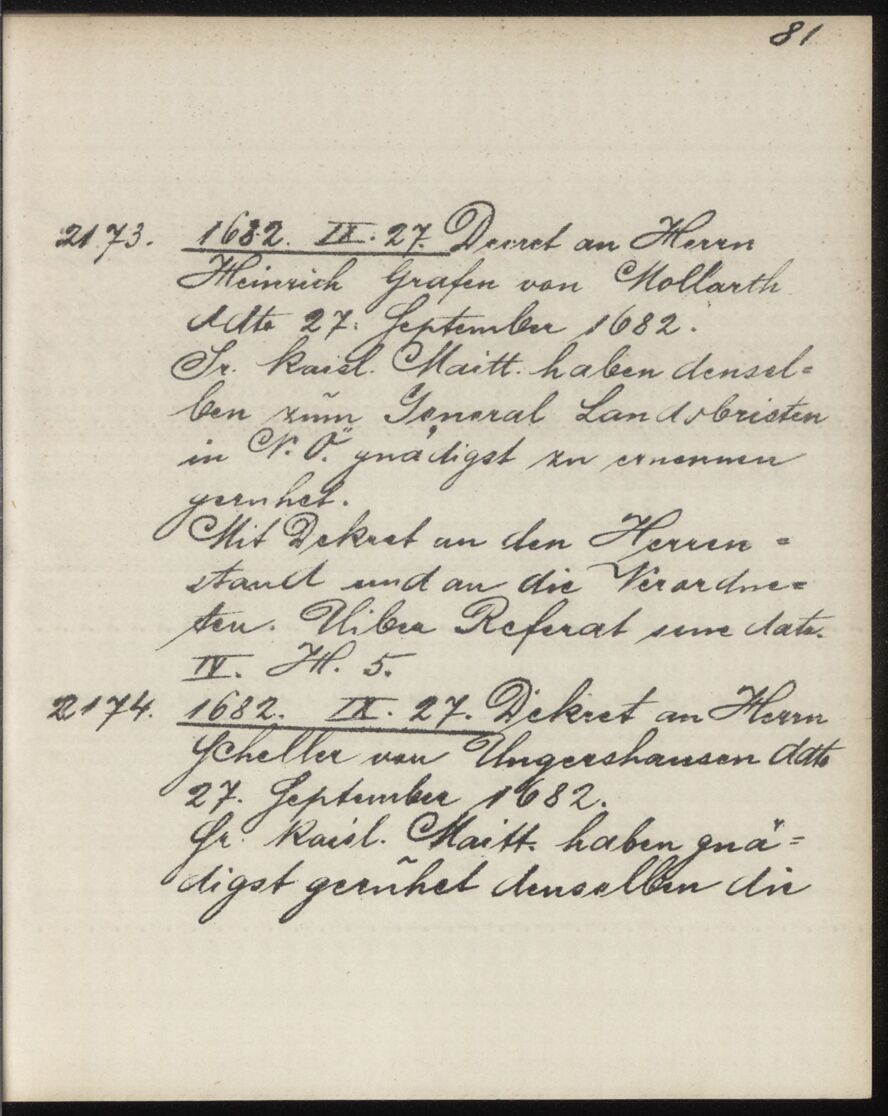 81
2173. 1682. IX. 27. Decret an Herrn
Heinrich Grafen von Mollarth
ddto 27. September 1682.
Sr. kaisl. Maitt. haben densel=
ben zum General Landobristen
in N. Ö. gnädigst zu ernennen
geruhet.
Mit Dekret an den Herren=
stand und an die Verordne=
ten. Uiber Referat sine dato.
IV. H. 5.
2174. 1682. IX. 27. Dekret an Herrn
Scheller von Ungershausen ddto
27. September 1682.
Sr. kaisl. Maitt. haben gnä=
digst gerühet denselben die